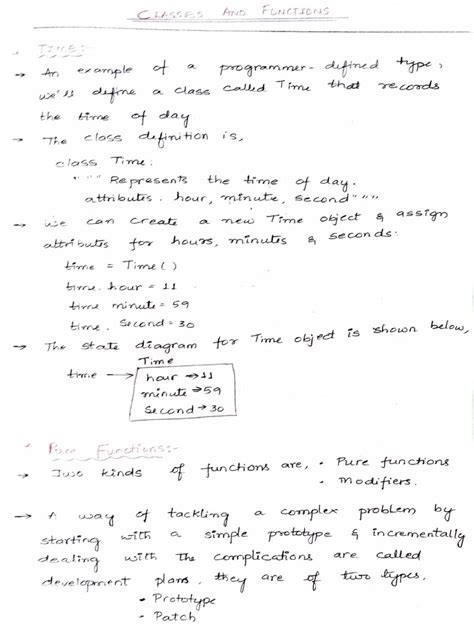 CLASSES AND FUNCTIONS
TIME:-
→ An example of a programmer-defined type,
we'll define a class called Time that records
the time of day
→ The class definition is,
class Time:
""" Represents the time of day.
attributes: hour, minute, second"""
→ we can create a new Time object & assign
attributes for hours, minutes & seconds:
time = Time()
time. hour = 11
time. minute = 59
time. Second = 30
→ The state diagram for Time object is shown below,
Time
time → hour → 11
minute → 59
Second → 30
Pure Functions:-
→ Two kinds of functions are, • Pure functions
• Modifiers.
→ A way of tackling a complex problem by
starting with a simple prototype & incrementally
dealing with the complications are called
development plans, they are of two types,
• Prototype
• Patch